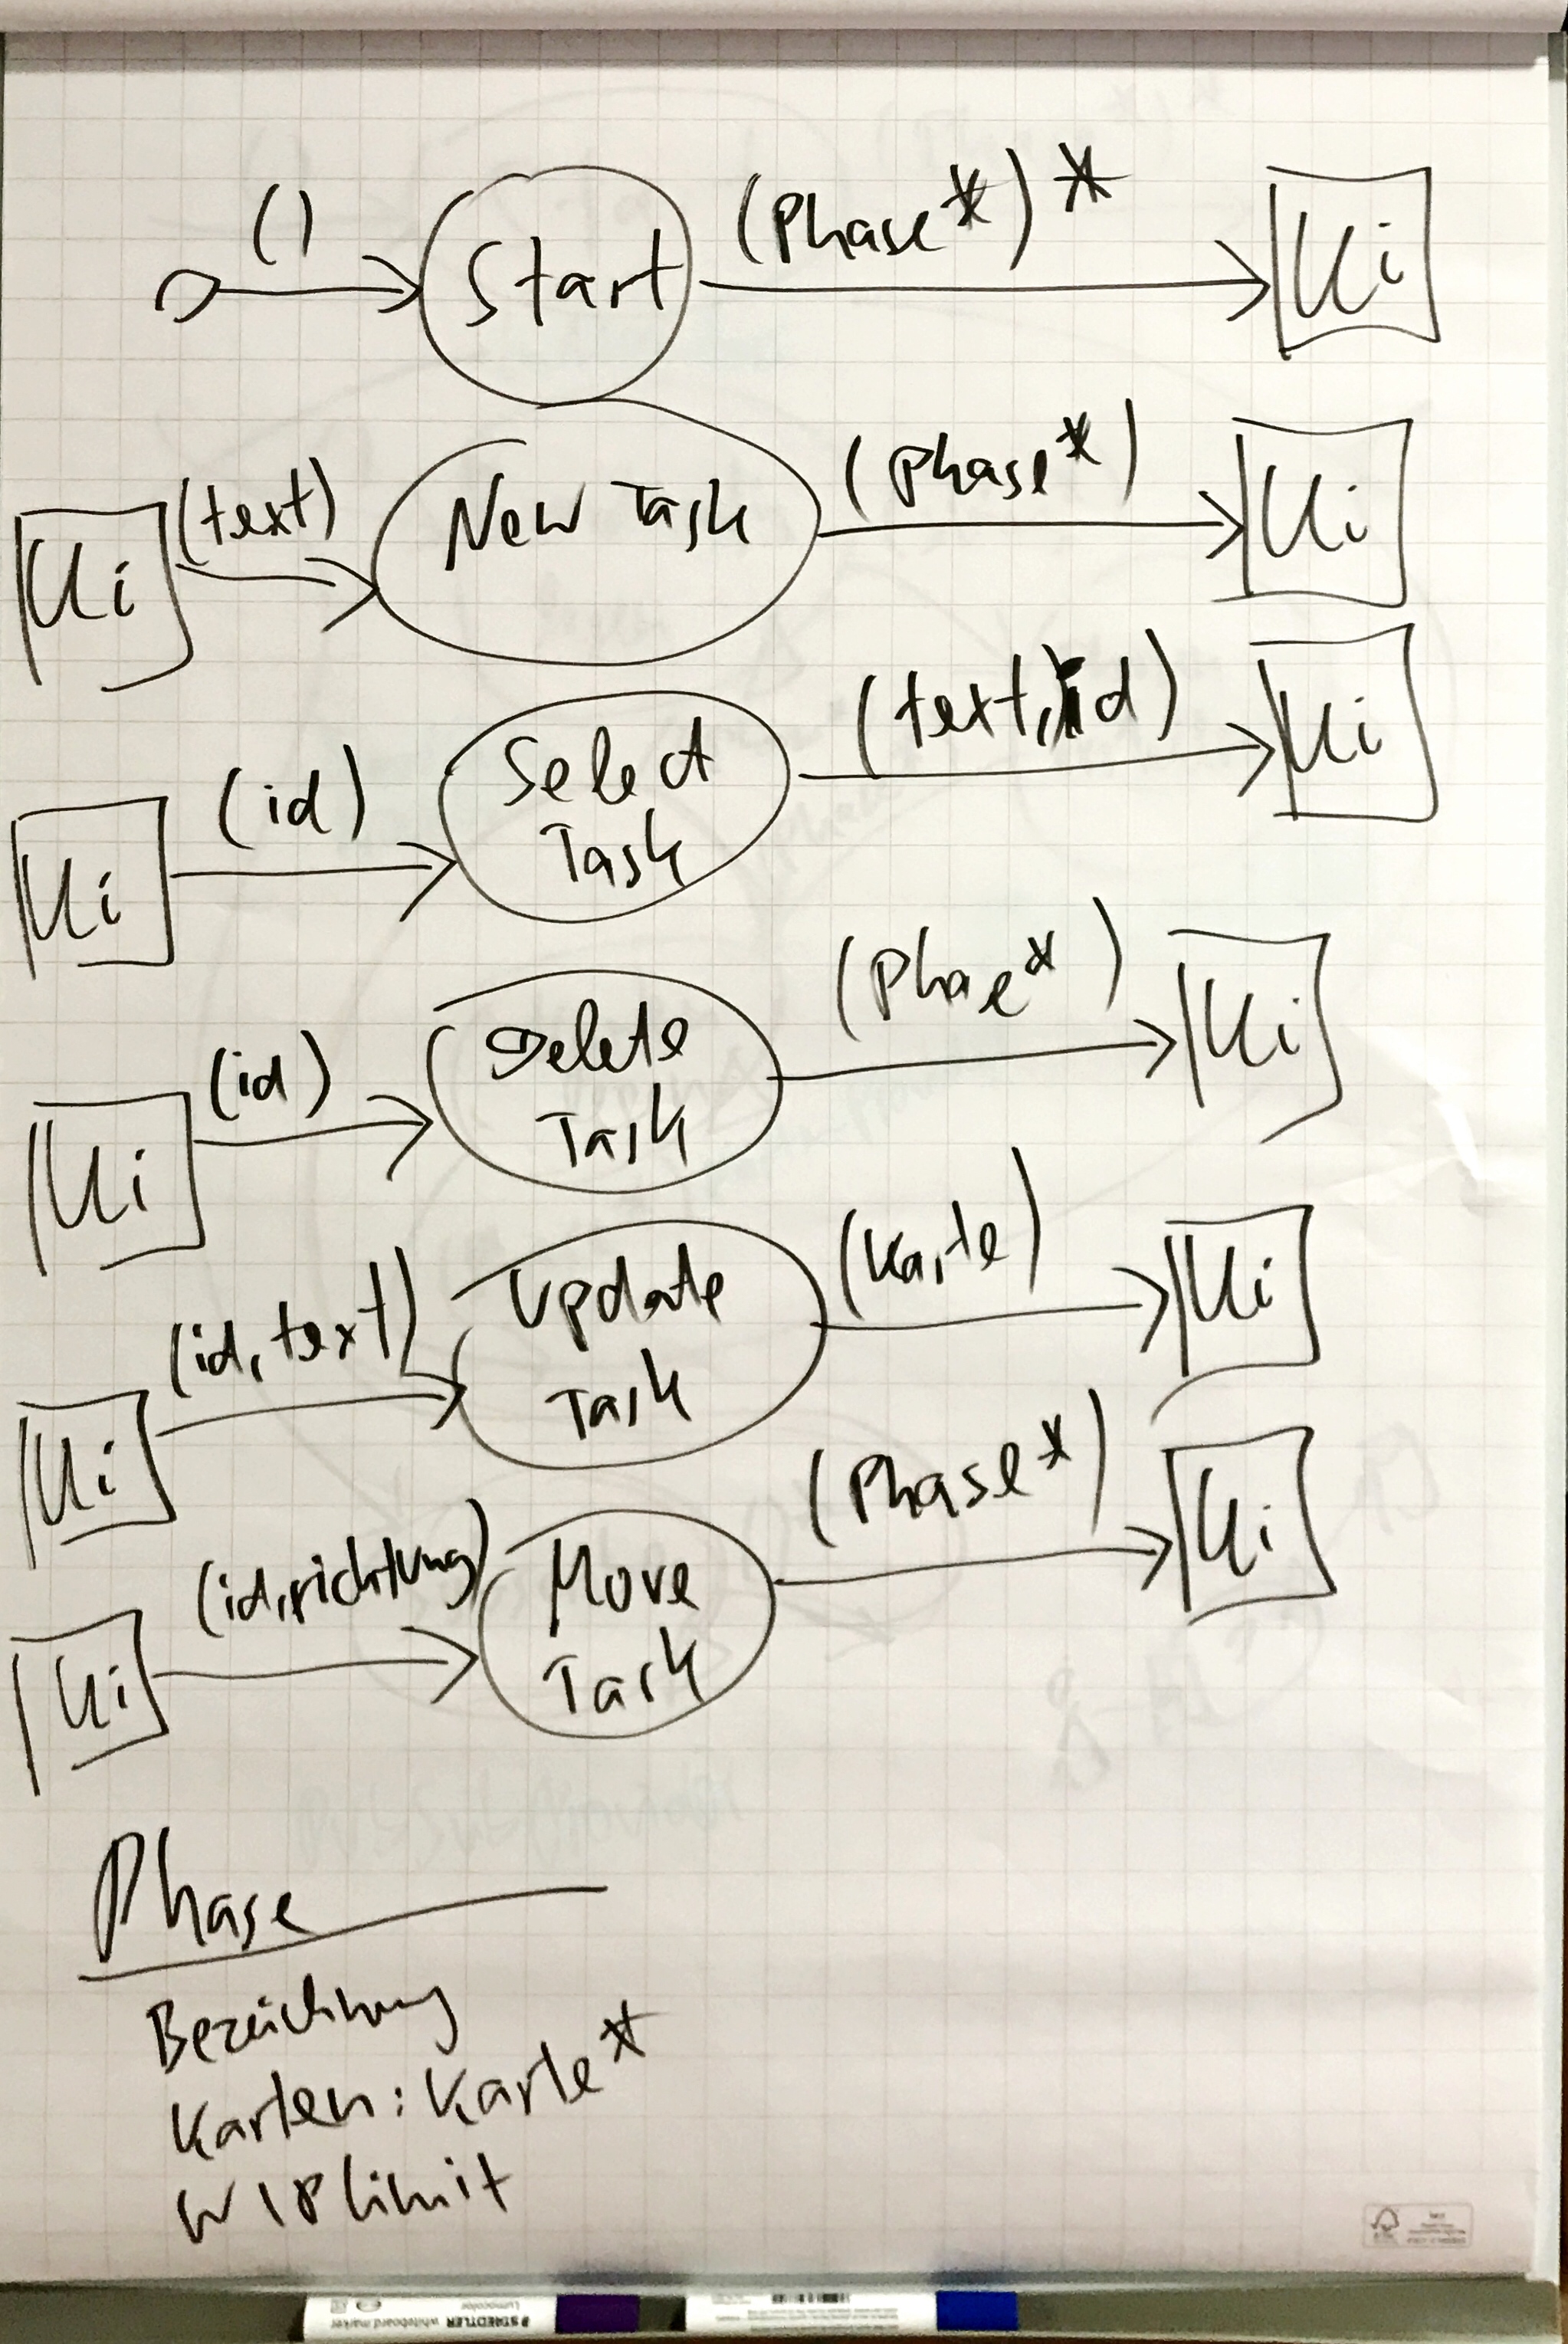 ()
Start
(Phase*)*
Ui
Ui
(text)
New Task
(Phase*)
Ui
Ui
(id)
Select
Task
(text, id)
Ui
Ui
(id)
Delete
Task
(Phase*)
Ui
Ui
(id, text)
Update
Task
(Karte)
Ui
Ui
(id, richtung)
Move
Task
(Phase*)
Ui
Phase
Bezeichnung
Karten: Karte*
WIP limit
STAEDTLER
Lumocolor
whiteboard marker